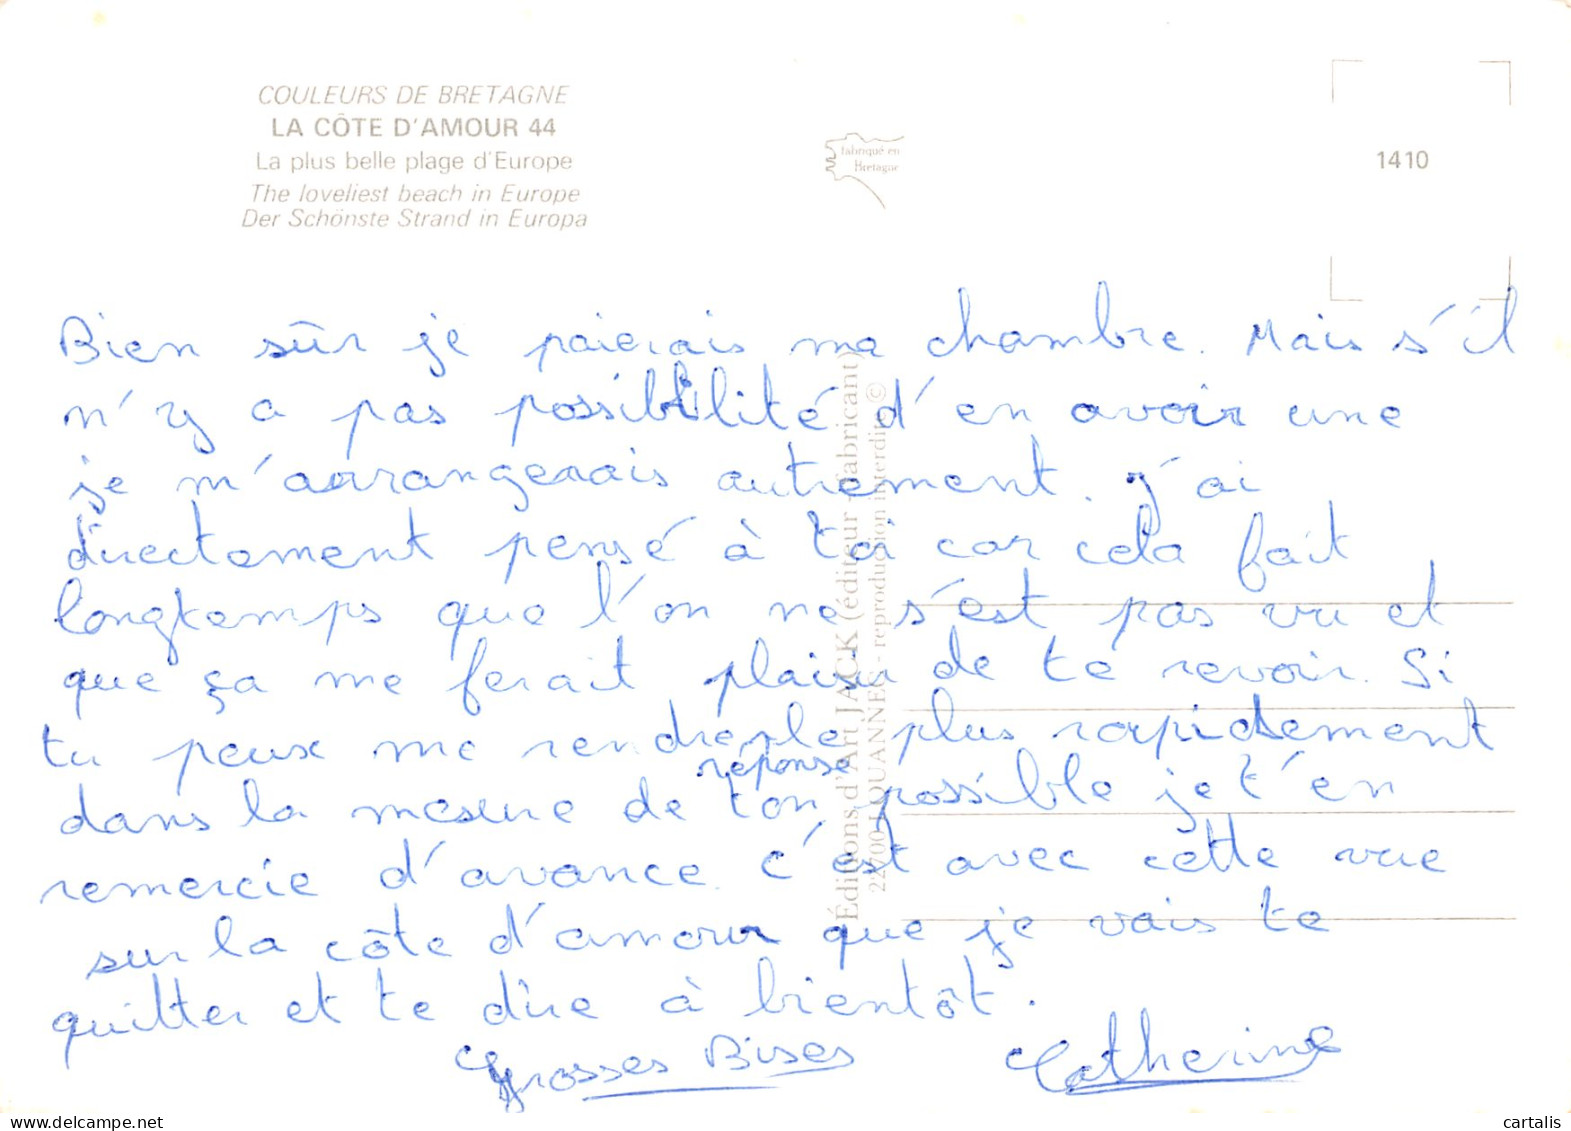 COULEURS DE BRETAGNE
LA CÔTE D'AMOUR 44
La plus belle plage d'Europe
The loveliest beach in Europe
Der Schönste Strand in Europa
fabriqué en
Bretagne
1410
Éditions d'Art JACK (éditeur - fabricant)
22700 LOUANNEC - reproduction interdite ©
Bien sûr je paierais ma chambre. Mais s'il
n'y a pas possibilité d'en avoir une
je m'arrangerais autrement. J'ai
directement pensé à toi car cela fait
longtemps que l'on ne s'est pas vu et
que ça me ferait plaisir de te revoir. Si
tu peux me rendre le plus rapidement
réponse
dans la mesure de ton possible je t'en
remercie d'avance. C'est avec cette vue
sur la côte d'amour que je vais te
quitter et te dire à bientôt.
Grosses Bises Catherine
delcampe.net
cartalis